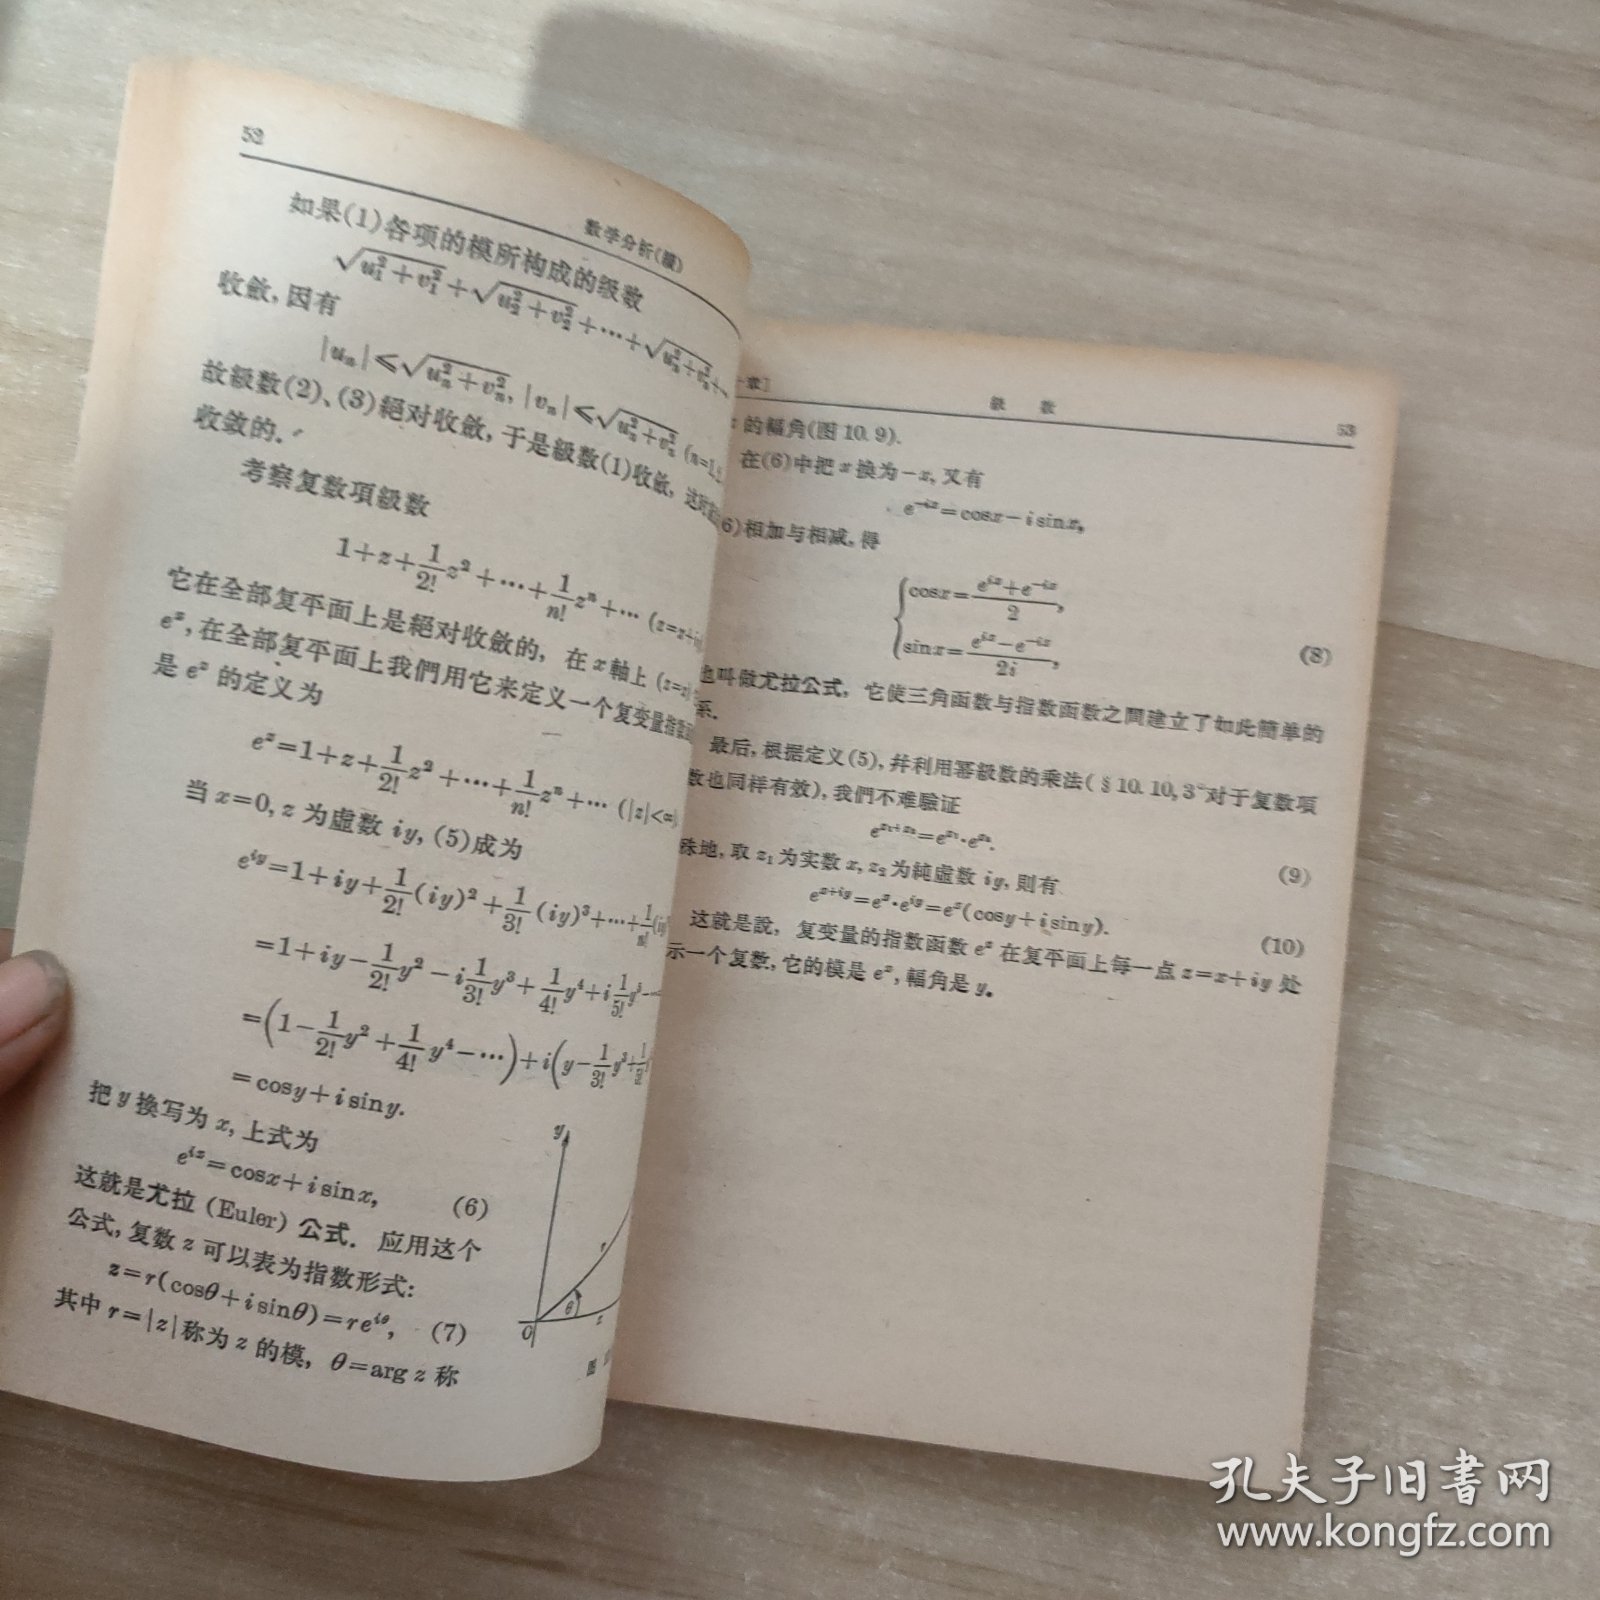 52
数学分析(續)
如果(1)各项的模所构成的级数
√(u₁²+v₁²)+√(u₂²+v₂²)+⋯+√(uₙ²+vₙ²)+⋯
收斂,因有
|uₙ|≤√(uₙ²+vₙ²), |vₙ|≤√(uₙ²+vₙ²) (n=1,
故級数(2)、(3)絕对收斂,于是級数(1)收斂,
收斂的.
考察复数項級数
1+z+1/2! z²+⋯+1/n! zⁿ+⋯ (z=x+iy)
它在全部复平面上是絕对收斂的,在x軸上(z=x)
eˣ,在全部复平面上我們用它来定义一个复变量指数
是 eᶻ 的定义为
eᶻ=1+z+1/2! z²+⋯+1/n! zⁿ+⋯ (|z|<∞).
当 x=0, z 为虛数 iy, (5)成为
e^{iy}=1+iy+1/2!(iy)²+1/3!(iy)³+⋯+1/n!(iy)
=1+iy−1/2! y²−i 1/3! y³+1/4! y⁴+i 1/5! y⁵−⋯
=(1−1/2! y²+1/4! y⁴−⋯)+i(y−1/3! y³+1/5!
=cosy+isiny.
把 y 換写为 x, 上式为
e^{ix}=cosx+isinx, (6)
这就是尤拉 (Euler) 公式. 应用这个
公式,复数 z 可以表为指数形式:
z=r(cosθ+isinθ)=re^{iθ}, (7)
其中 r=|z|称为 z 的模, θ=arg z 称
y
r
θ
O
x
图
章]
級 数
53
的幅角(图 10.9).
在(6)中把 x 換为−x, 又有
e^{−ix}=cosx−isinx,
6)相加与相减,得
cosx=(e^{ix}+e^{−ix})/2,
sinx=(e^{ix}−e^{−ix})/2i, (8)
也叫做尤拉公式,它使三角函数与指数函数之間建立了如此簡单的
系.
最后,根据定义(5),幷利用冪級数的乘法(§10.10,3°对于复数項
数也同样有效),我們不难驗证
e^{z₁+z₂}=e^{z₁}·e^{z₂}. (9)
殊地,取 z₁ 为实数 x, z₂ 为純虛数 iy, 則有
e^{x+iy}=eˣ·e^{iy}=eˣ(cosy+isiny). (10)
这就是說,复变量的指数函数 eᶻ 在复平面上每一点 z=x+iy 处
示一个复数,它的模是 eˣ,幅角是 y.
孔夫子旧书网
www.kongfz.com